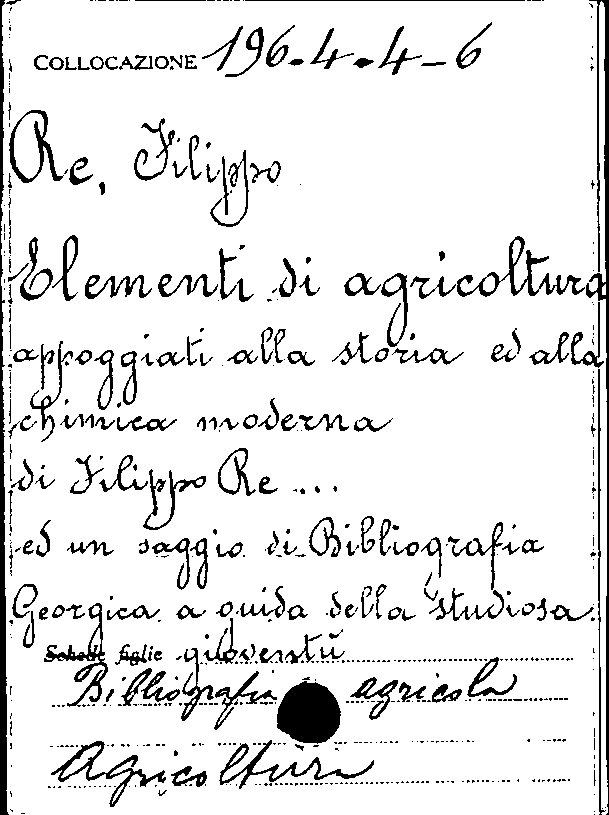 COLLOCAZIONE 196.4.4-6
Re, Filippo
Elementi di agricoltura
appoggiati alla storia ed alla
chimica moderna
di Filippo Re ...
ed un saggio di Bibliografia
Georgica a guida della studiosa
Schede figlie gioventù
Bibliografia agricola
Agricoltura